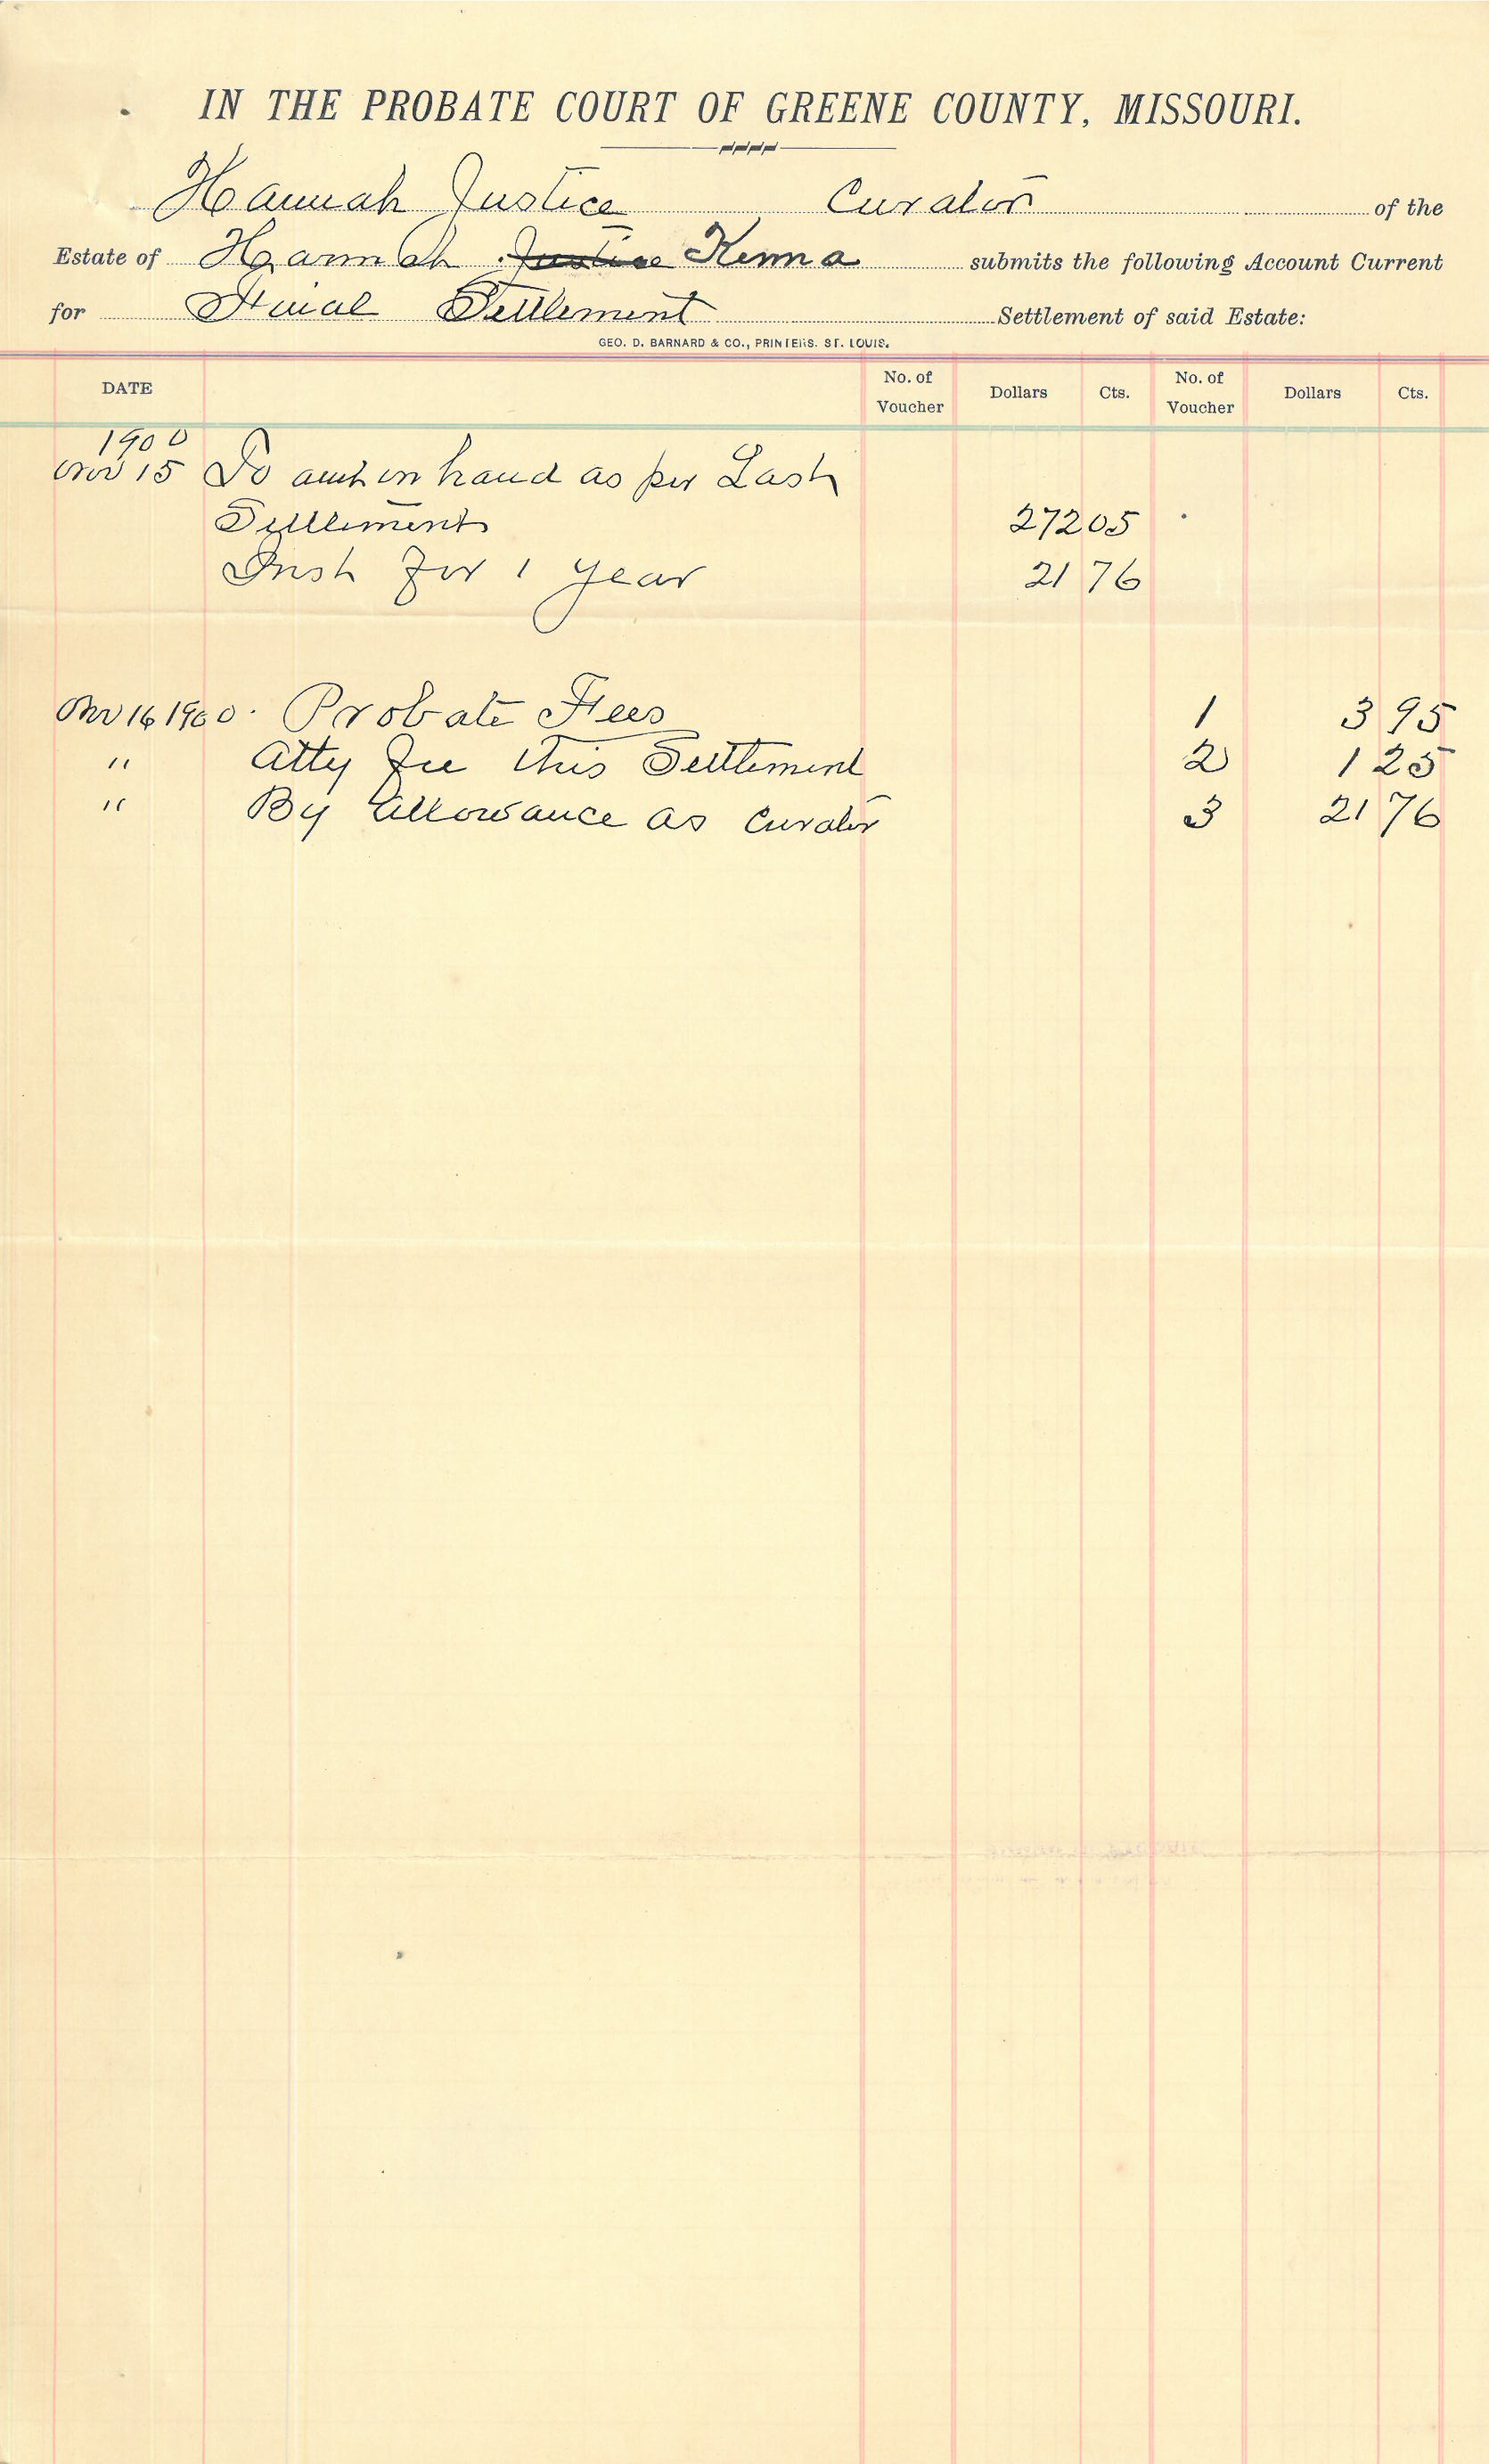 IN THE PROBATE COURT OF GREENE COUNTY, MISSOURI.
Hannah Justice Curator of the
Estate of Hannah Justice Kenna submits the following Account Current
for Final Settlement Settlement of said Estate:
GEO. D. BARNARD & CO., PRINTERS. ST. LOUIS.
DATE No. of Voucher Dollars Cts. No. of Voucher Dollars Cts.
1900
Nov 15 To amt on hand as per Last
Settlement 272 05
Inst for 1 year 21 76
Nov 16 1900. Probate Fees 1 3 95
" Atty Fee this Settlement 2 1 25
" By Allowance as Curator 3 21 76